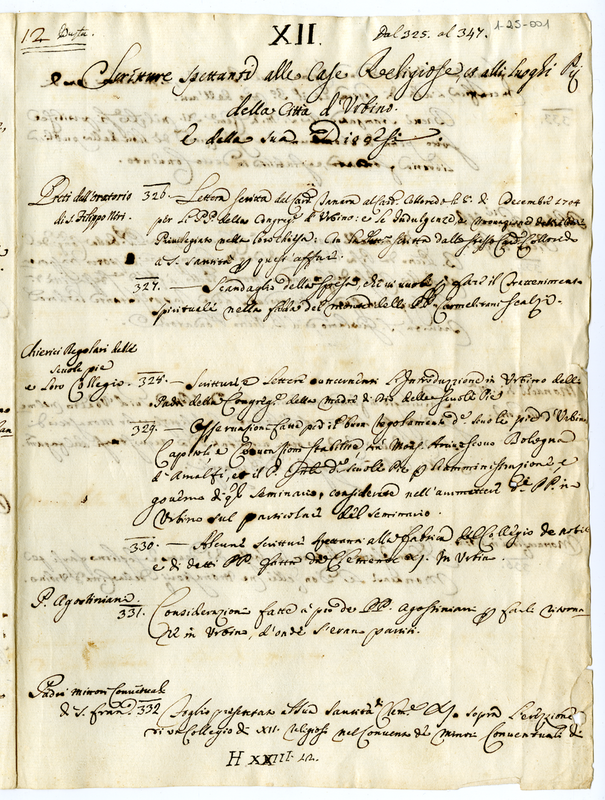 12 Busta
XII.
Dal 325. al 347.
1-25-001
Scritture spettanti alle Case Religiose, et alli luoghi Pij
della Città d'Urbino.
E della sua
Preti dell'oratorio 326. Lettera scritta dal Card. Sanara al Card. Colloredo li 8. di Decembre 1704
di S. Filippo Neri. per li PP. della Congreg. d'Urbino: e la Indulgenza
Privilegiato nella loro chiesa: con la scritta dallo stesso Card. Colloredo
à S. Santità p quest' affare.
327. — Scandaglio della spesa, che vi vuole p fare il trattenimento
spirituale nella falda del monte delli PP. Carmelitani Scalzi.
Chierici Regolari delle
scuole pie
e loro Collegio. 328. — Scritture, e lettere concernenti l'Introduzzione in Urbino delli
Padri della Congreg. della Madre di Dio delle Scuole Pie
329. — Osservazioni fatte per il buon regolamento d. scuole pie d'Urbino
Capitoli, e Convenzioni stabilite trà Mons. Arcivescovo Bologna
d'Amalfi, et il P. Gnle d. scuole Pie p l'Amministrazione, e
governo di q. seminario, considerate nell' ammettere d. PP. in
Urbino sul particolare del seminario.
330. — Alcune scritture spettanti alla fabrica del Collegio de nobili
e di detti PP. fatta da Clemente XI. in Urbino.
P. Agostiniani.
331. Considerazioni fatte à pro de PP. Agostiniani p farli ritorna-
re in Urbino, d'onde s'eran partiti.
Padri minori Conventuali
di S. Fran. 332 Foglio presentato alla Santità di Clem. XI. sopra l'erezzione
di un Collegio di XII. Religiosi nel Convento de Minori Conventuali di
H XXIII. 12.